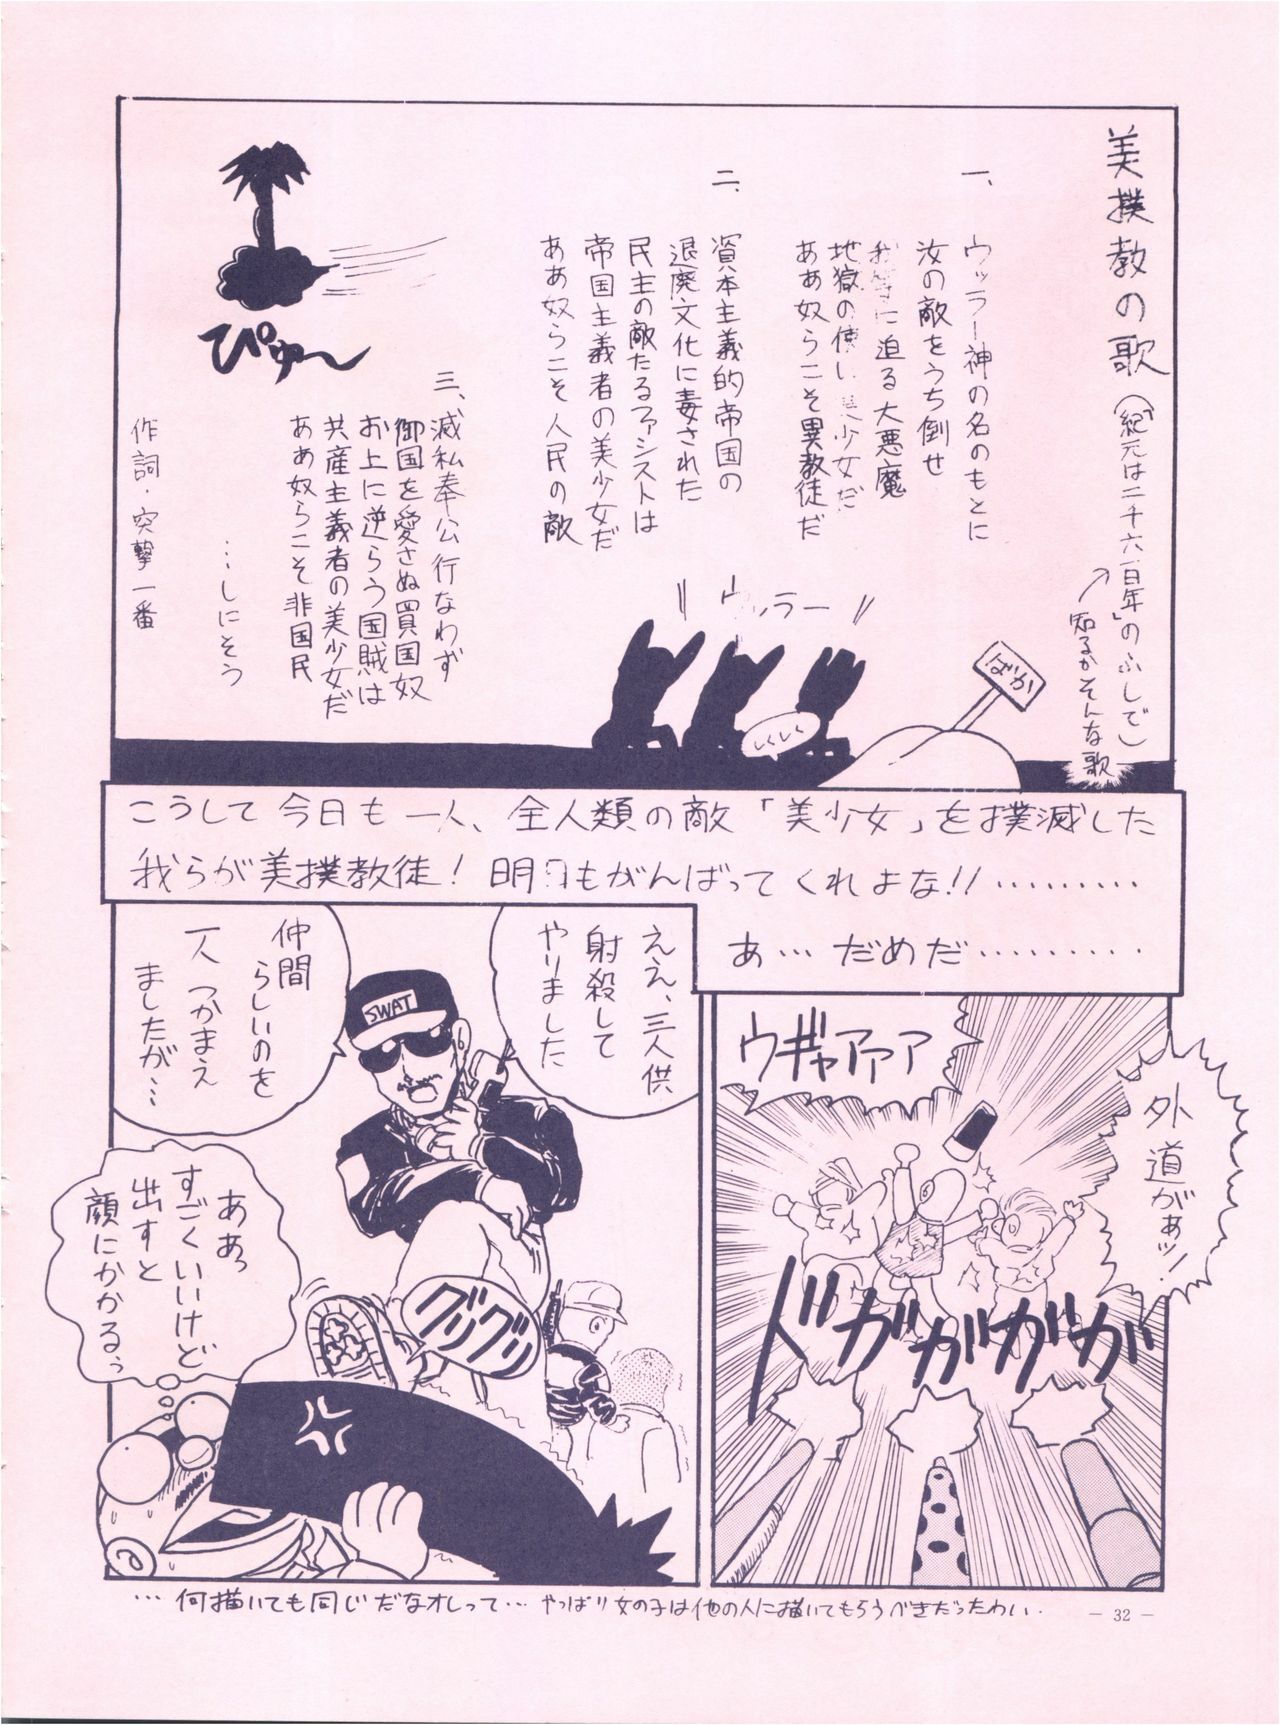 美撲教の歌
(「紀元は二千六百年」のふしで)
知るかそんな歌
一、
ウッラー神の名のもとに
汝の敵をうち倒せ
に迫る大悪魔
地獄の使い美少女だ
ああ奴らこそ異教徒だ
二、
資本主義的帝国の
退廃文化に毒された
民主の敵たるファシストは
帝国主義者の美少女だ
ああ奴らこそ人民の敵
三、
滅私奉公行なわず
御国を愛さぬ買国奴
お上に逆らう国賊は
共産主義者の美少女だ
ああ奴らこそ非国民
…しにそう
作詞・突撃一番
ぴゅ〜
ウッラー
しくしく
ばか
こうして今日も一人、全人類の敵「美少女」を撲滅した
我らが美撲教徒!明日もがんばってくれよな!!………
あ…だめだ………
外道がぁッ!
ウギャアァア
ドガガガガ
ええ、三人供
射殺して
やりました
仲間
らしいのを
一人つかまえ
ましたが…
SWAT
グリグリ
ああっ
すごくいいけど
出すと
顔にかかるぅ
…何描いても同じだなオレって…やっぱり女の子は他の人に描いてもらうべきだったわい.
— 32 —